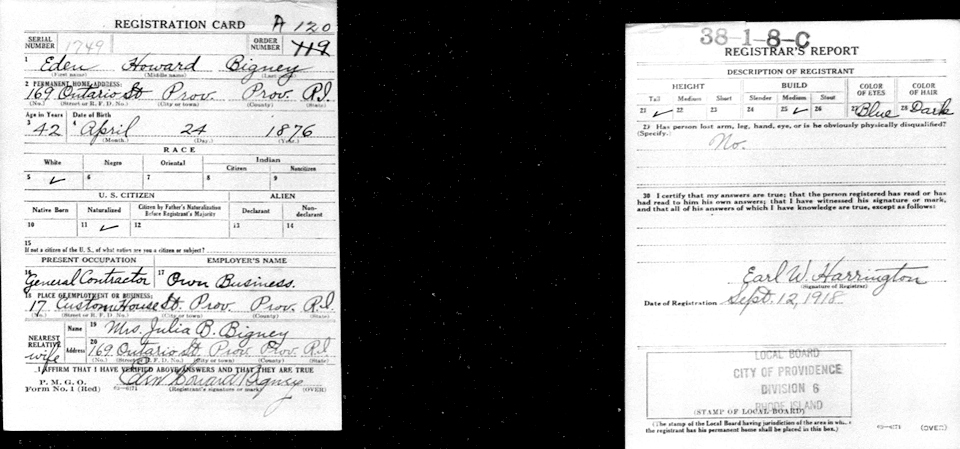 REGISTRATION CARD A 120
SERIAL NUMBER 1749 ORDER NUMBER 119
1 Eden Howard Bigney
(First name) (Middle name) (Last name)
2 PERMANENT HOME ADDRESS:
169 Ontario St Prov. Prov. R.I.
(No.) (Street or R. F. D. No.) (City or town) (County) (State)
Age in Years Date of Birth
3 42 4 April 24 1876
(Month.) (Day.) (Year.)
RACE
White Negro Oriental Indian
Citizen Noncitizen
5 ✓ 6 7 8 9
U. S. CITIZEN ALIEN
Native Born Naturalized Citizen by Father's Naturalization Before Registrant's Majority Declarant Non-declarant
10 11 ✓ 12 13 14
15
If not a citizen of the U. S., of what nation are you a citizen or subject?
PRESENT OCCUPATION EMPLOYER'S NAME
16 General Contractor 17 Own Business.
18 PLACE OF EMPLOYMENT OR BUSINESS:
17 Custom House St. Prov. Prov. R.I.
(No.) (Street or R. F. D. No.) (City or town) (County) (State)
NEAREST RELATIVE wife
Name 19 Mrs. Julia B. Bigney
Address 20 169 Ontario St Prov. Prov. R.I
(No.) (Street or R. F. D. No.) (City or town) (County) (State)
I AFFIRM THAT I HAVE VERIFIED ABOVE ANSWERS AND THAT THEY ARE TRUE
P. M. G. O.
Form No. 1 (Red) Eden Howard Bigney
(Registrant's signature or mark) (OVER)
38-1-8-C
REGISTRAR'S REPORT
DESCRIPTION OF REGISTRANT
HEIGHT BUILD COLOR OF EYES COLOR OF HAIR
Tall Medium Short Slender Medium Stout
21 ✓ 22 23 24 25 ✓ 26 27 Blue 28 Dark
29 Has person lost arm, leg, hand, eye, or is he obviously physically disqualified?
(Specify.) No.
30 I certify that my answers are true; that the person registered has read or has
had read to him his own answers; that I have witnessed his signature or mark,
and that all of his answers of which I have knowledge are true, except as follows:
Earl W. Harrington
(Signature of Registrar)
Date of Registration Sept. 12, 1918
LOCAL BOARD
CITY OF PROVIDENCE
DIVISION 6
RHODE ISLAND
(STAMP OF LOCAL BOARD)
(The stamp of the Local Board having jurisdiction of the area in which
the registrant has his permanent home shall be placed in this box.)
(OVER)